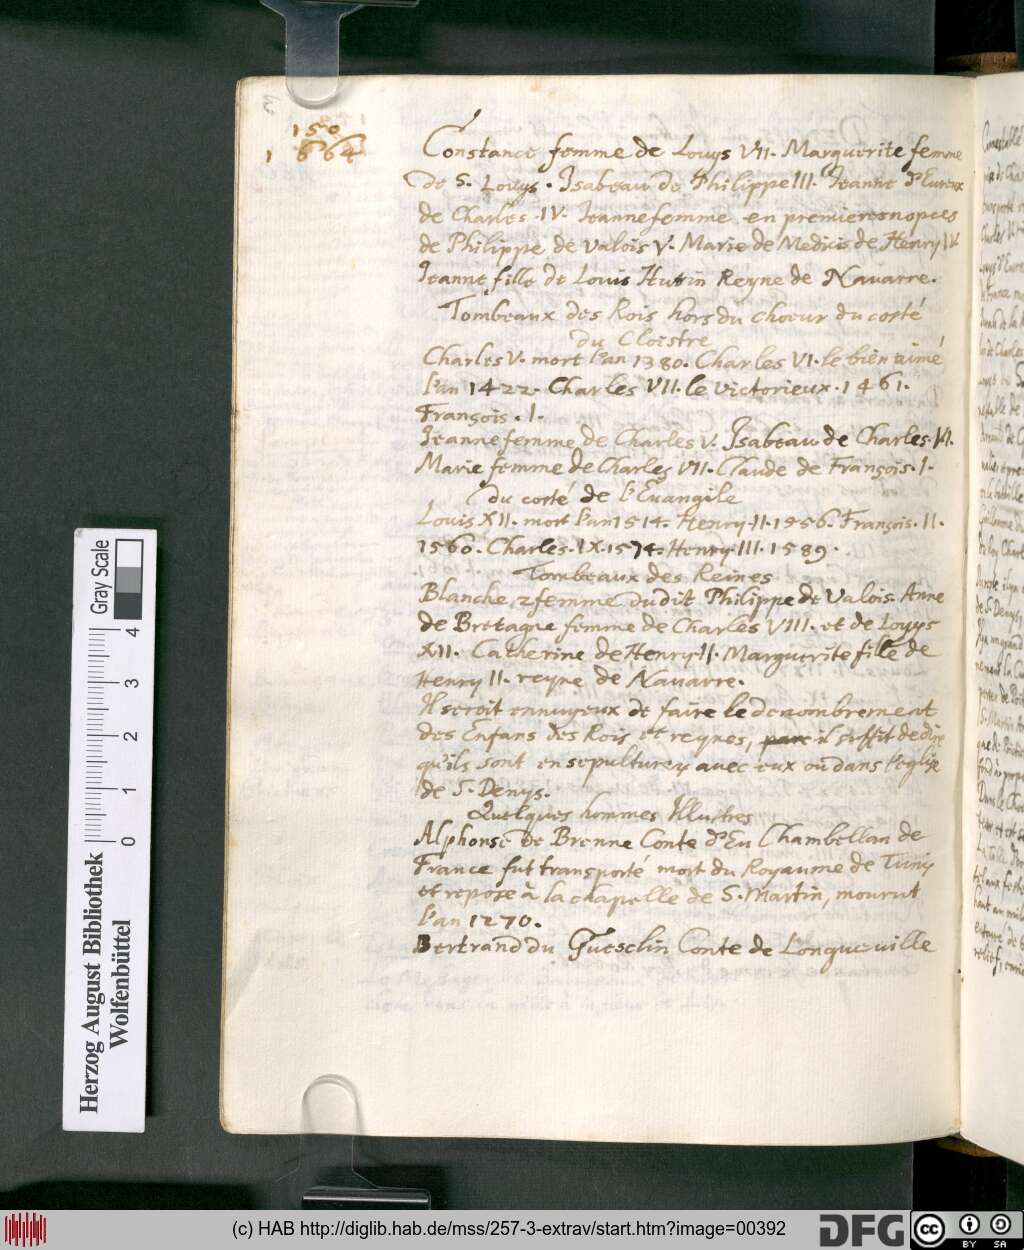 150
1664
Constance femme de Louys VII. Marguerite femme
de S. Louys. Isabeau de Philippe III. Jeanne d'Eureux
de Charles IV. Jeanne femme en premieres nopces
de Philippe de Valois V. Marie de Medicis de Henry IV.
Jeanne fille de Louis Hutin Reyne de Nauarre.
Tombeaux des Rois hors du choeur du costé
du Cloistre
Charles V. mort l'an 1380. Charles VI. le bien aimé
l'an 1422. Charles VII. le victorieux. 1461.
François. I.
Jeanne femme de Charles V. Isabeau de Charles. VI.
Marie femme de Charles VII. Claude de François. I.
du costé de l'Euangile
Louis XII. mort l'an 1514. Henry. II. 1956. François. II.
1560. Charles. IX. 1574. Henry. III. 1589.
Tombeaux des Reines
Blanche, 2 femme dudit Philippe de Valois. Anne
de Bretagne femme de Charles VIII. et de Louys
XII. Catherine de Henry. II. Marguerite fille de
Henry II. reyne de Nauarre.
Il seroit ennuyeux de faire le denombrement
des Enfans des Rois et reynes, il suffit de dire
qu'ils sont ensepulturez auec eux ou dans l'eglise
de S. Denys.
Quelques hommes Illustres
Alphonse de Brenne Conte d'Eu Chambellan de
France fut transporté mort du Royaume de Tunis
et repose à la chapelle de S. Martin, mourut
l'an 1270.
Bertrand du Guesclin Conte de Longueville
Gray Scale
0 1 2 3 4
Herzog August Bibliothek
Wolfenbüttel
(c) HAB http://diglib.hab.de/mss/257-3-extrav/start.htm?image=00392
DFG
cc
BY SA